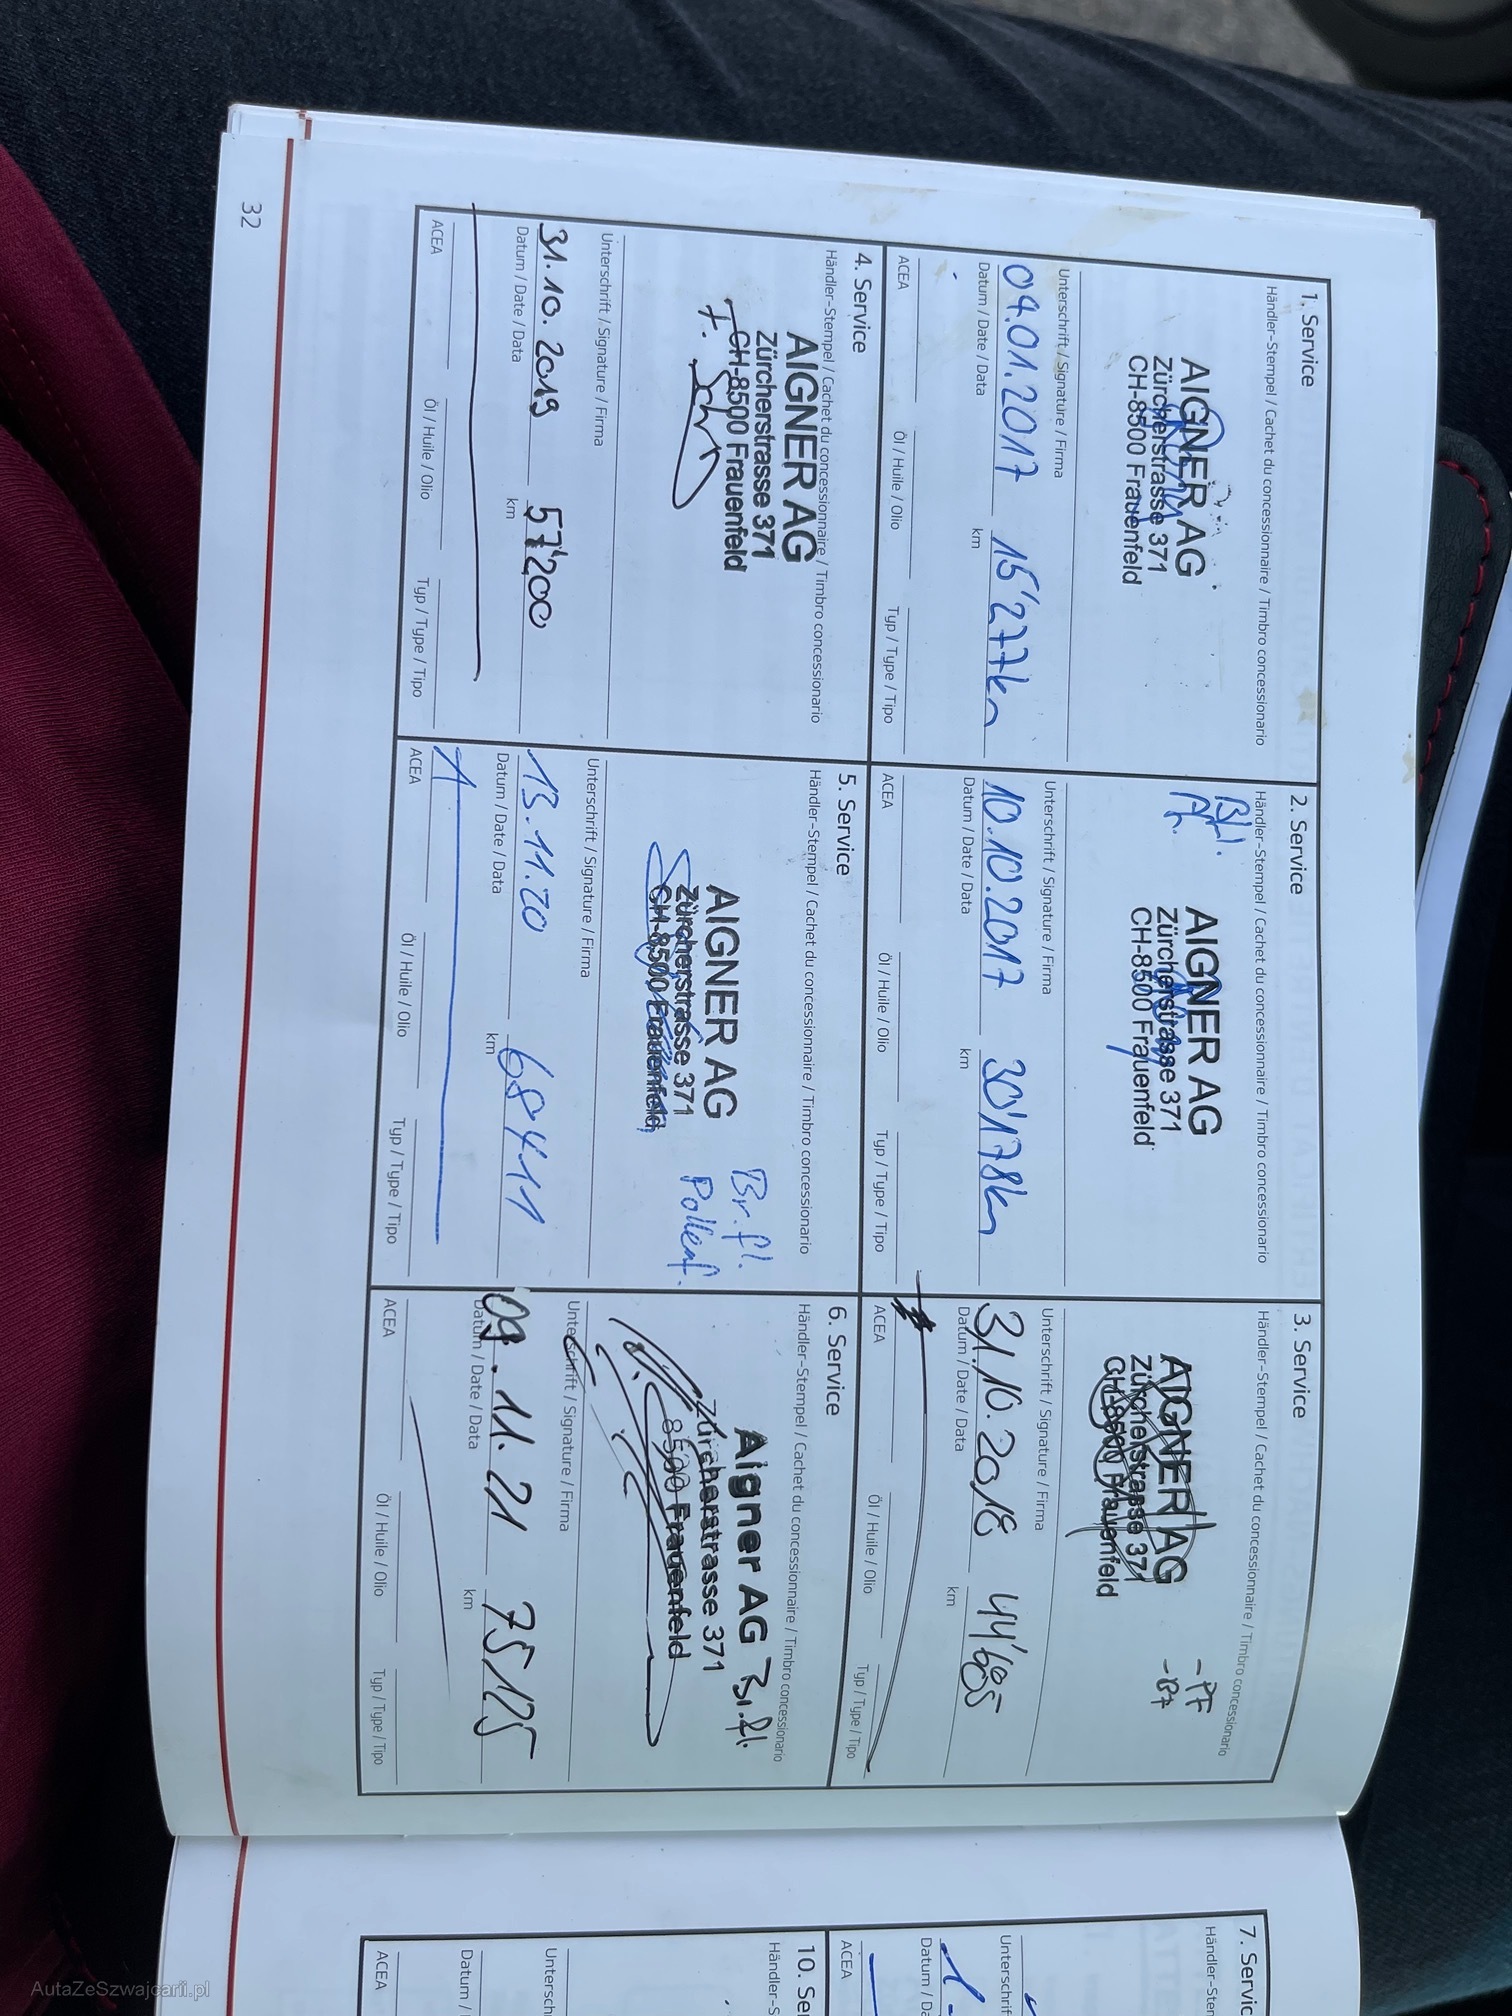 1. Service
Händler-Stempel / Cachet du concessionnaire / Timbro concessionario
AIGNER AG
Zürcherstrasse 371
CH-8500 Frauenfeld
Unterschrift / Signature / Firma
15'277km
Datum / Date / Data km
ACEA Öl / Huile / Olio Typ / Type / Tipo
2. Service
Händler-Stempel / Cachet du concessionnaire / Timbro concessionario
AIGNER AG
Zürcherstrasse 371
CH-8500 Frauenfeld
Unterschrift / Signature / Firma
10.10.2017 30'178km
Datum / Date / Data km
ACEA Öl / Huile / Olio Typ / Type / Tipo
3. Service
Händler-Stempel / Cachet du concessionnaire / Timbro concessionario
AIGNER AG
Zürcherstrasse 371
CH-8500 Frauenfeld
-PF
Unterschrift / Signature / Firma
31.10.2018 44'685
Datum / Date / Data km
ACEA Öl / Huile / Olio Typ / Type / Tipo
4. Service
Händler-Stempel / Cachet du concessionnaire / Timbro concessionario
AIGNER AG
Zürcherstrasse 371
CH-8500 Frauenfeld
Unterschrift / Signature / Firma
31.10.2019 57'200
Datum / Date / Data km
ACEA Öl / Huile / Olio Typ / Type / Tipo
5. Service
Händler-Stempel / Cachet du concessionnaire / Timbro concessionario
Br.fl.
Pollenf.
AIGNER AG
Zürcherstrasse 371
CH-8500 Frauenfeld
Unterschrift / Signature / Firma
13.11.20 68411
Datum / Date / Data km
ACEA Öl / Huile / Olio Typ / Type / Tipo
6. Service
Händler-Stempel / Cachet du concessionnaire / Timbro concessionario
Aigner AG Br.fl.
Zürcherstrasse 371
8500 Frauenfeld
Unterschrift / Signature / Firma
09.11.21 75125
Datum / Date / Data km
ACEA Öl / Huile / Olio Typ / Type / Tipo
32
7. Servic
Händler-Ster
Unterschrif
Datum / Da
ACEA
10. Se
Händler-S
Untersch
Datum /
ACEA
AutaZeSzwajcarii.pl